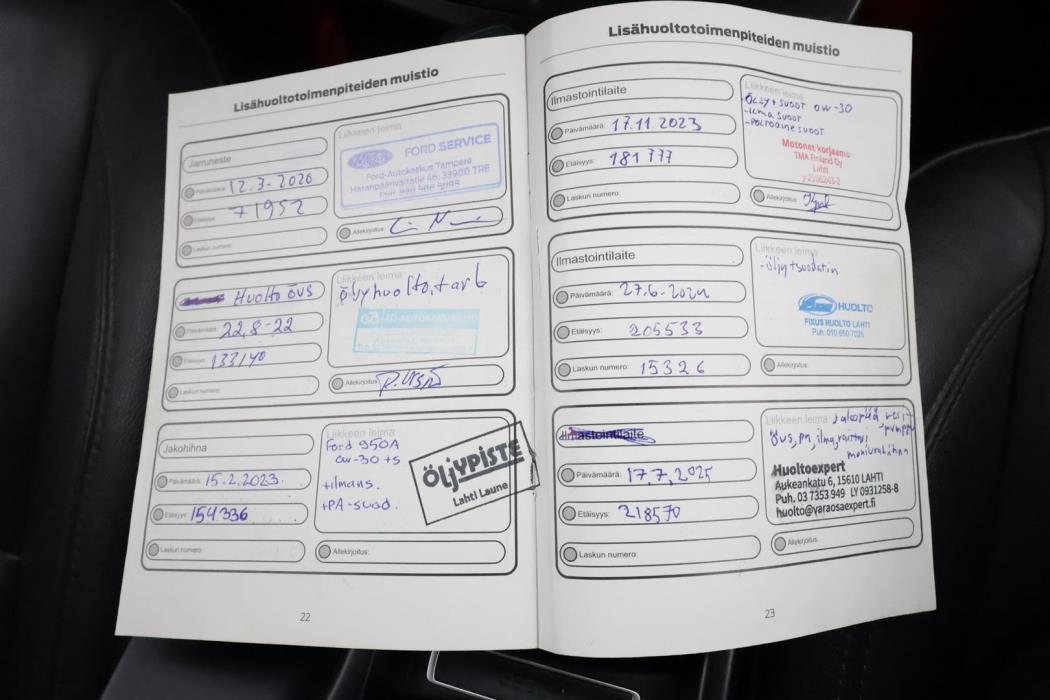 Lisähuoltotoimenpiteiden muistio
Jarruneste
Päivämäärä: 12.3-2020
Etäisyys: 71952
Laskun numero:
Liikkeen leima
Ford
FORD SERVICE
Ford-Autokeskus Tampere
Hatanpäänvaltatie 46, 33900 TRE
Allekirjoitus:
Huolto övs
Päivämäärä: 22.8-22
Etäisyys: 133140
Laskun numero:
Liikkeen leima
öljyhuolto, tarb
Allekirjoitus:
Jakohihna
Päivämäärä: 15.2.2023.
Etäisyys: 154336
Laskun numero:
Liikkeen leima
Ford 950A
0w-30 +s
+ilmans.
+PA-suod.
ÖLJYPISTE
Lahti Laune
Allekirjoitus:
22
Lisähuoltotoimenpiteiden muistio
Ilmastointilaite
Päivämäärä: 17.11.2023
Etäisyys: 181777
Laskun numero:
Liikkeen leima
ÖLJY + SUODT 0W-30
-ILMA SUODT
-POLTTOAINE SUODT
Motonet korjaamo
TMA Finland Oy
Lahti
Allekirjoitus:
Ilmastointilaite
Päivämäärä: 27.6-2024
Etäisyys: 205533
Laskun numero: 15326
Liikkeen leima
-öljy+suodatin
HUOLTO
FIXUS HUOLTO LAHTI
Puh. 010 650 7025
Allekirjoitus:
Ilmastointilaite
Päivämäärä: 17.7.2025
Etäisyys: 218570
Laskun numero:
Liikkeen leima jakopää vesi-
pumppu
övs, pa, ilma, raitisi,
moniurahihna
Huoltoexpert
Aukeankatu 6, 15610 LAHTI
Puh. 03 7353 949 LY 0931258-8
huolto@varaosaexpert.fi
Allekirjoitus:
23